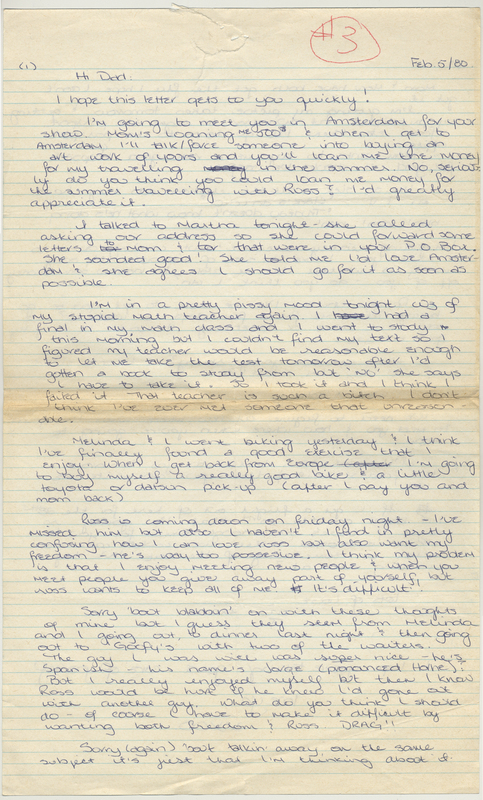 #3
(1)
Feb. 5/80
Hi Dad.
I hope this letter gets to you quickly!
I'm going to meet you in Amsterdam for your
show. Mom's loaning me 500 & when I get to
Amsterdam I'll talk/force someone into buying an
art work of yours and you'll loan me the money
for my travelling in the summer. No, serious-
ly do you think you could loan me money for
the summer travelling with Ross? I'd greatly
appreciate it.
I talked to Martha tonight - she called
asking our address so she could forward some
letters to mom & tax that were in your P.O. Box.
She sounded good! She told me I'd love Amster-
dam & she agrees I should go for it as soon as
possible.
I'm in a pretty pissy mood tonight cuz of
my stupid math teacher again. I had a
final in my math class and I went to study
this morning but I couldn't find my text so I
figured my teacher would be reasonable enough
to let me take the test tomorrow after I'd
gotten a book to study from but "No" she says
I have to take it. So I took it and I think I
failed it. That teacher is such a bitch. I don't
think I've ever met someone that unreason-
able.
Melinda & I went biking yesterday & I think
I've finally found a good exercise that I
enjoy. When I get back from Europe (after I'm going
to buy myself a really good bike & a little
toyota or datsun pick-up (after I pay you and
mom back)
Ross is coming down on Friday night. - I've
missed him but also I haven't. I find in pretty
confusing how I can love Ross but also want my
freedom - he's way too possesive. I think my problem
is that I enjoy meeting new people & when you
meet people you give away part of yourself but
Ross wants to keep all of me. It's difficult!
Sorry 'bout on with these thoughts
of mine but I guess they stem from Melinda
and I going out to dinner last night & then going
out to Goofy's with two of the waiters.
The guy I was with was super nice - he's
Spanish - his name's Jorge (pronounced Horhe)!
But I really enjoyed myself but then I know
Ross would be hurt if he knew I'd gone out
with another guy. What do you think I should
do - of coarse I have to make it difficult by
wanting both freedom & Ross. DRAG!!
Sorry (again) 'bout talkin' away on the same
subject it's just that I'm thinking about it.